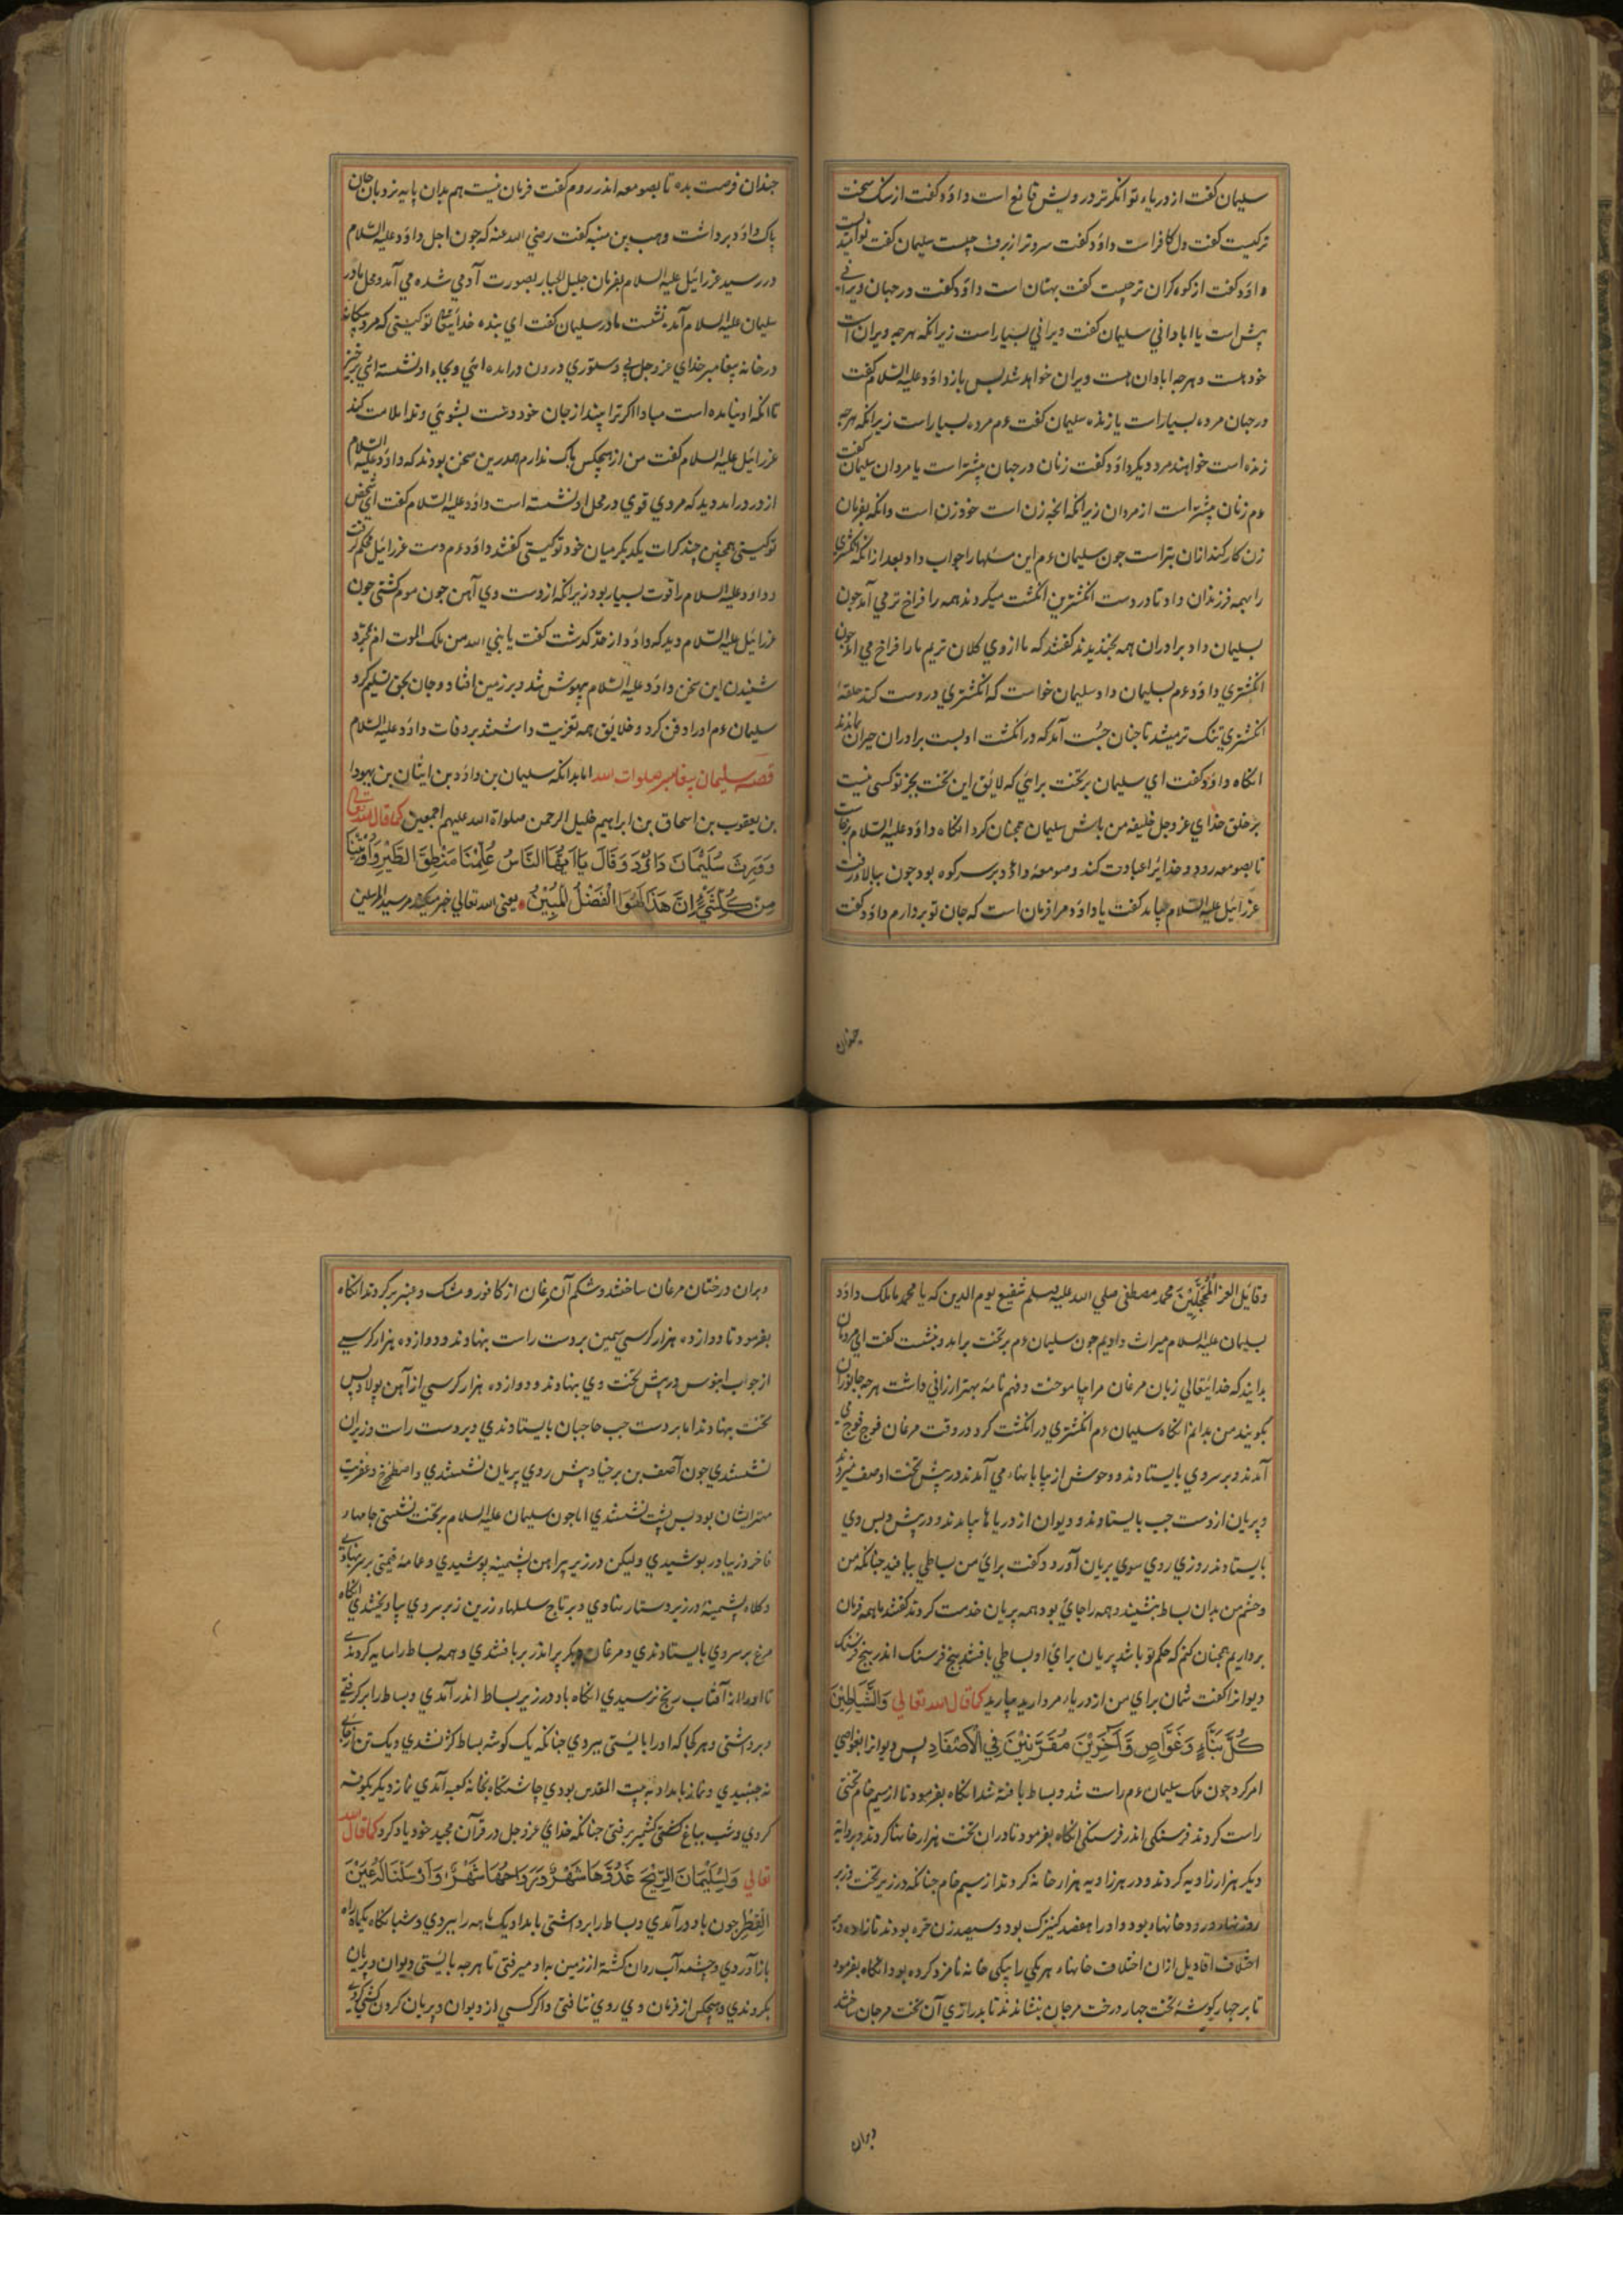 سلیمان گفت از دریاء توانگرتر درویش قانع است داؤد گفت از سنک سخت
ترکیست گفت دل کافر است داؤد گفت سردتر از برف چیست سلیمان گفت
داؤد گفت از کوه کران تر چیست گفت بهتان است داؤد گفت در جهان ویرانی
بیش است یا ابادانی سلیمان گفت ویرانی بسیار است زیرانکه هرچه ویران است
خود هست و هرچه ابادان هست ویران خواهد شد پس باز داؤد علیه السلام گفت
در جهان مرده بسیار است یا زنده سلیمان گفت ءم مرده بسیار است زیرانکه هرچه
زنده است خواهند مرد دیکر داؤد گفت زنان در جهان بیشتر است یا مردان سلیمان گفت
ءم زنان بیشتر است از مردان زیرانکه انچه زن است خود زن است وانکه بفرمان
زن کار کند ازان بتر است جون سلیمان ءم این مسئلها را جواب داد بعد ازانکه انکشتری
را بهمه فرزندان داد تا در دست انکشترین انکشت میکردند همه را فراخ تر می آمد جون
بسلیمان داد برادران همه بخندیدند گفتند که ما از وی کلان تریم ما را فراخ می آمد جون
انکشتری داؤد ءم بسلیمان داد سلیمان خواست که انکشتری در دست کند حلقهٔ
انکشتری تنک تر میشد تا جنان جست آمد که در انکشت او بست برادران حیران بماندند
انکاه داؤد گفت ای سلیمان بر تخت برائی که لایق این تخت بجز تو کسی نیست
بر خلق خذای عز و جل خلیفه من باش سلیمان همچنان کرد انکاه داؤد علیه السلام برخاست
تا بصومعه رود و خدایرا عبادت کند و صومعهٔ داؤد بر سر کوه بود جون ببالا رفت
عزرائیل علیه السلام بیامد گفت یا داؤد مرا فرمان است که جان تو بردارم داؤد گفت
جندان
جندان فرصت بده تا بصومعه اندر روم گفت فرمان نیست هم بدان پایه نردبان جان
پاک داؤد برداشت وهب بن منبه گفت رضی الله عنه که جون اجل داؤد علیه السلام
در رسید عزرائیل علیه السلام بفرمان جلیل الجبار بصورت آدمی شده می آمد و محل مادر
سلیمان علیه السلام آمد بنشست مادر سلیمان گفت ای بنده خدایتعالی تو کیستی که مرد بیکانه
در خانه پیغامبر خدای عز و جل بی دستوری درون درامده ائی و بجاء او نشسته ائی برخیز
تا انکه او نیامده است مبادا اکر ترا بیند از جان خود دست بشوئی و ترا ملامت کند
عزرائیل علیه السلام گفت من از هیچکس باک ندارم همدرین سخن بودند که داؤد علیه السلام
از در درامد دید که مردی قوی در محل او نشسته است داؤد علیه السلام گفت ای شخص
تو کیستی همچنین چند کرات یکدیکر میان خود تو کیستی گفتند داؤد ءم دست عزرائیل محکم کرفت
و داؤد علیه السلام را قوت بسیار بود زیرانکه از دست وی آهن جون موم کشتی جون
عزرائیل علیه السلام دید که داؤد از حد کذشت گفت یا نبی الله من ملک الموت ام بمجرد
شنیدن این سخن داؤد علیه السلام بیهوش شد و بر زمین افتاد و جان بحق تسلیم کرد
سلیمان ءم او را دفن کرد و خلایق همه تعزیت داشتند بر وفات داؤد علیه السلام
قصه سلیمان پیغامبر صلوات الله اما بدانکه سلیمان بن داؤد بن ایشان بن یهودا
بن یعقوب بن اسحاق بن ابراهیم خلیل الرحمن صلواة الله علیهم اجمعین کما قال الله تعالی
وَوَرِثَ سُلَیْمَانَ دَاوُدَ وَقَالَ یَا اَیُّهَا النَّاسُ عُلِّمْنَا مَنْطِقَ الطَّیْرِ وَاُوتِیْنَا
مِنْ کُلِّ شَیْءٍ اِنَّ هَذَا لَهُوَ الْفَضْلُ الْمُبِیْنُ یعنی الله تعالی خبر میکند مر سید المرسلین
و قایل الغر المُحَجَّلِیْنَ محمد مصطفی صلی الله علیه وسلم شفیع یوم الدین که یا محمد ما ملک داؤد
بسلیمان علیه السلام میراث دادیم جون سلیمان ءم بر تخت برامد و بنشست گفت ای مردمان
بدانید که خدایتعالی زبان مرغان مرا بیاموخت و فهم نامهٔ بهتر ارزانی داشت هرچه جانوران
بگویند من بدانم انکاه سلیمان ءم انکشتری در انکشت کرد در وقت مرغان فوج فوج می
آمدند و بر سر وی بایستادند و وحوش از بیابانهاء می آمدند در پیش تخت او صف میزدند
و پریان از دست جب بایستادند و دیوان از دریاها بیامدند و در پیش و پس وی
بایستادند روزی روی سوی پریان آورد و گفت برای من بساطی بیافید جنانکه من
و حشم من بدان بساط بنشینند و همه را جای بود همه پریان خدمت کردند گفتند ما همه فرمان
برداریم همچنان کنم که حکم تو باشد پریان برای او بساطی بافتند پنج فرسنک اندر پنج فرسنک
دیوانرا گفت شمان برای من از دریاء مروارید بیارید کما قال الله تعالی وَالشَّیَاطِیْنَ
کُلَّ بَنَّاءٍ وَغَوَّاصٍ وَّآخَرِیْنَ مُقَرَّنِیْنَ فِی الْاَصْفَادِ پس دیوانرا بغواصی
امر کرد جون ملک سلیمان ءم راست شد و بساط بافته شد انکاه بفرمود تا از سیم خام تختی
راست کردند فرسنکی اندر فرسنکی انکاه بفرمود تا دران تخت هزار خانها کردند و بروایة
دیکر هزار زاویه کردند و در هر زاویه هزار خانه کردند از سیم خام جنانکه در زیر تخت وزبر
خانهاء بود و او را هفصد کنیزک بود و سیصد زن حره بودند تازاده و به
اختلاف اقاویل ازان اختلاف خانهاء هر یکی را بیکی خانه نامزد کرده بود انکاه بفرمود
تا بر جهار کوشهٔ تخت جهار درخت مرجان بنشاندند تا بدرازی آن تخت مرجان ساختند
وبران
وبران درختان مرغان ساختند و شکم آن مرغان از کافور و مشک و عنبر پر کردند انکاه
بفرمود تا دوازده هزار کرسی سیمین بر دست راست بنهادند و دوازده هزار کرسی
از جواب ابنوس در پیش تخت وی بنهادند و دوازده هزار کرسی از آهن پولاد پس
تخت بنهادند اما بر دست جب حاجبان بایستادندی و بر دست راست وزیران
نشستندی جون آصف بن برخیا و پیش روی پریان نشستندی و اصطخرخ و عفریت
مهتر ایشان بود پس پشت نشستندی اما جون سلیمان علیه السلام بر تخت نشستی جامهاء
فاخر و زیبا در پوشیدی ولیکن در زیر پیراهن پشمینه پوشیدی و عمامهٔ قیمتی بر سر نهادی
و کلاه پشمینه در زیر دستار نهادی و بر تاج سلسلهاء زرین زبر سر وی بیاویختندی انکاه
مرغ بر سر وی بایستادندی و مرغان دیکر پر اندر پر بافتندی و همه بساط را سایه کردندی
تا او را از آفتاب رنج نرسیدی انکاه باد در زیر بساط اندر آمدی و بساط را بر کرفتی
و برداشتی و هر کجا که او را بایستی ببردی جنانکه یک کوشه بساط کژ نشدی و یک تن از جای
نه جنبیدی و نماز بامداد به بیت المقدس بودی چاشتکاه بخانه کعبه آمدی نماز دیکر بکوفه
کردی و شب بباغ کشتی کشمیر برفتی جنانکه خدای عز و جل در قرآن مجید خود یاد کرد کما قال الله
تعالی وَلِسُلَیْمَانَ الرِّیْحَ غُدُوُّهَا شَهْرٌ وَّرَوَاحُهَا شَهْرٌ وَاَرْسَلْنَا لَهُ عَیْنَ
الْقِطْرِ جون باد در آمدی و بساط را برداشتی بامداد یک ماهه راه ببردی و شبانکاه یکماه راه
باز آوردی و چشمه آب روان کشته از زمین بداد میرفتی تا هرچه بایستی دیوان و پریان
بکردندی و هیچکس از فرمان وی روی نتافتی و اکر کسی از دیوان و پریان کردن کشی کردی